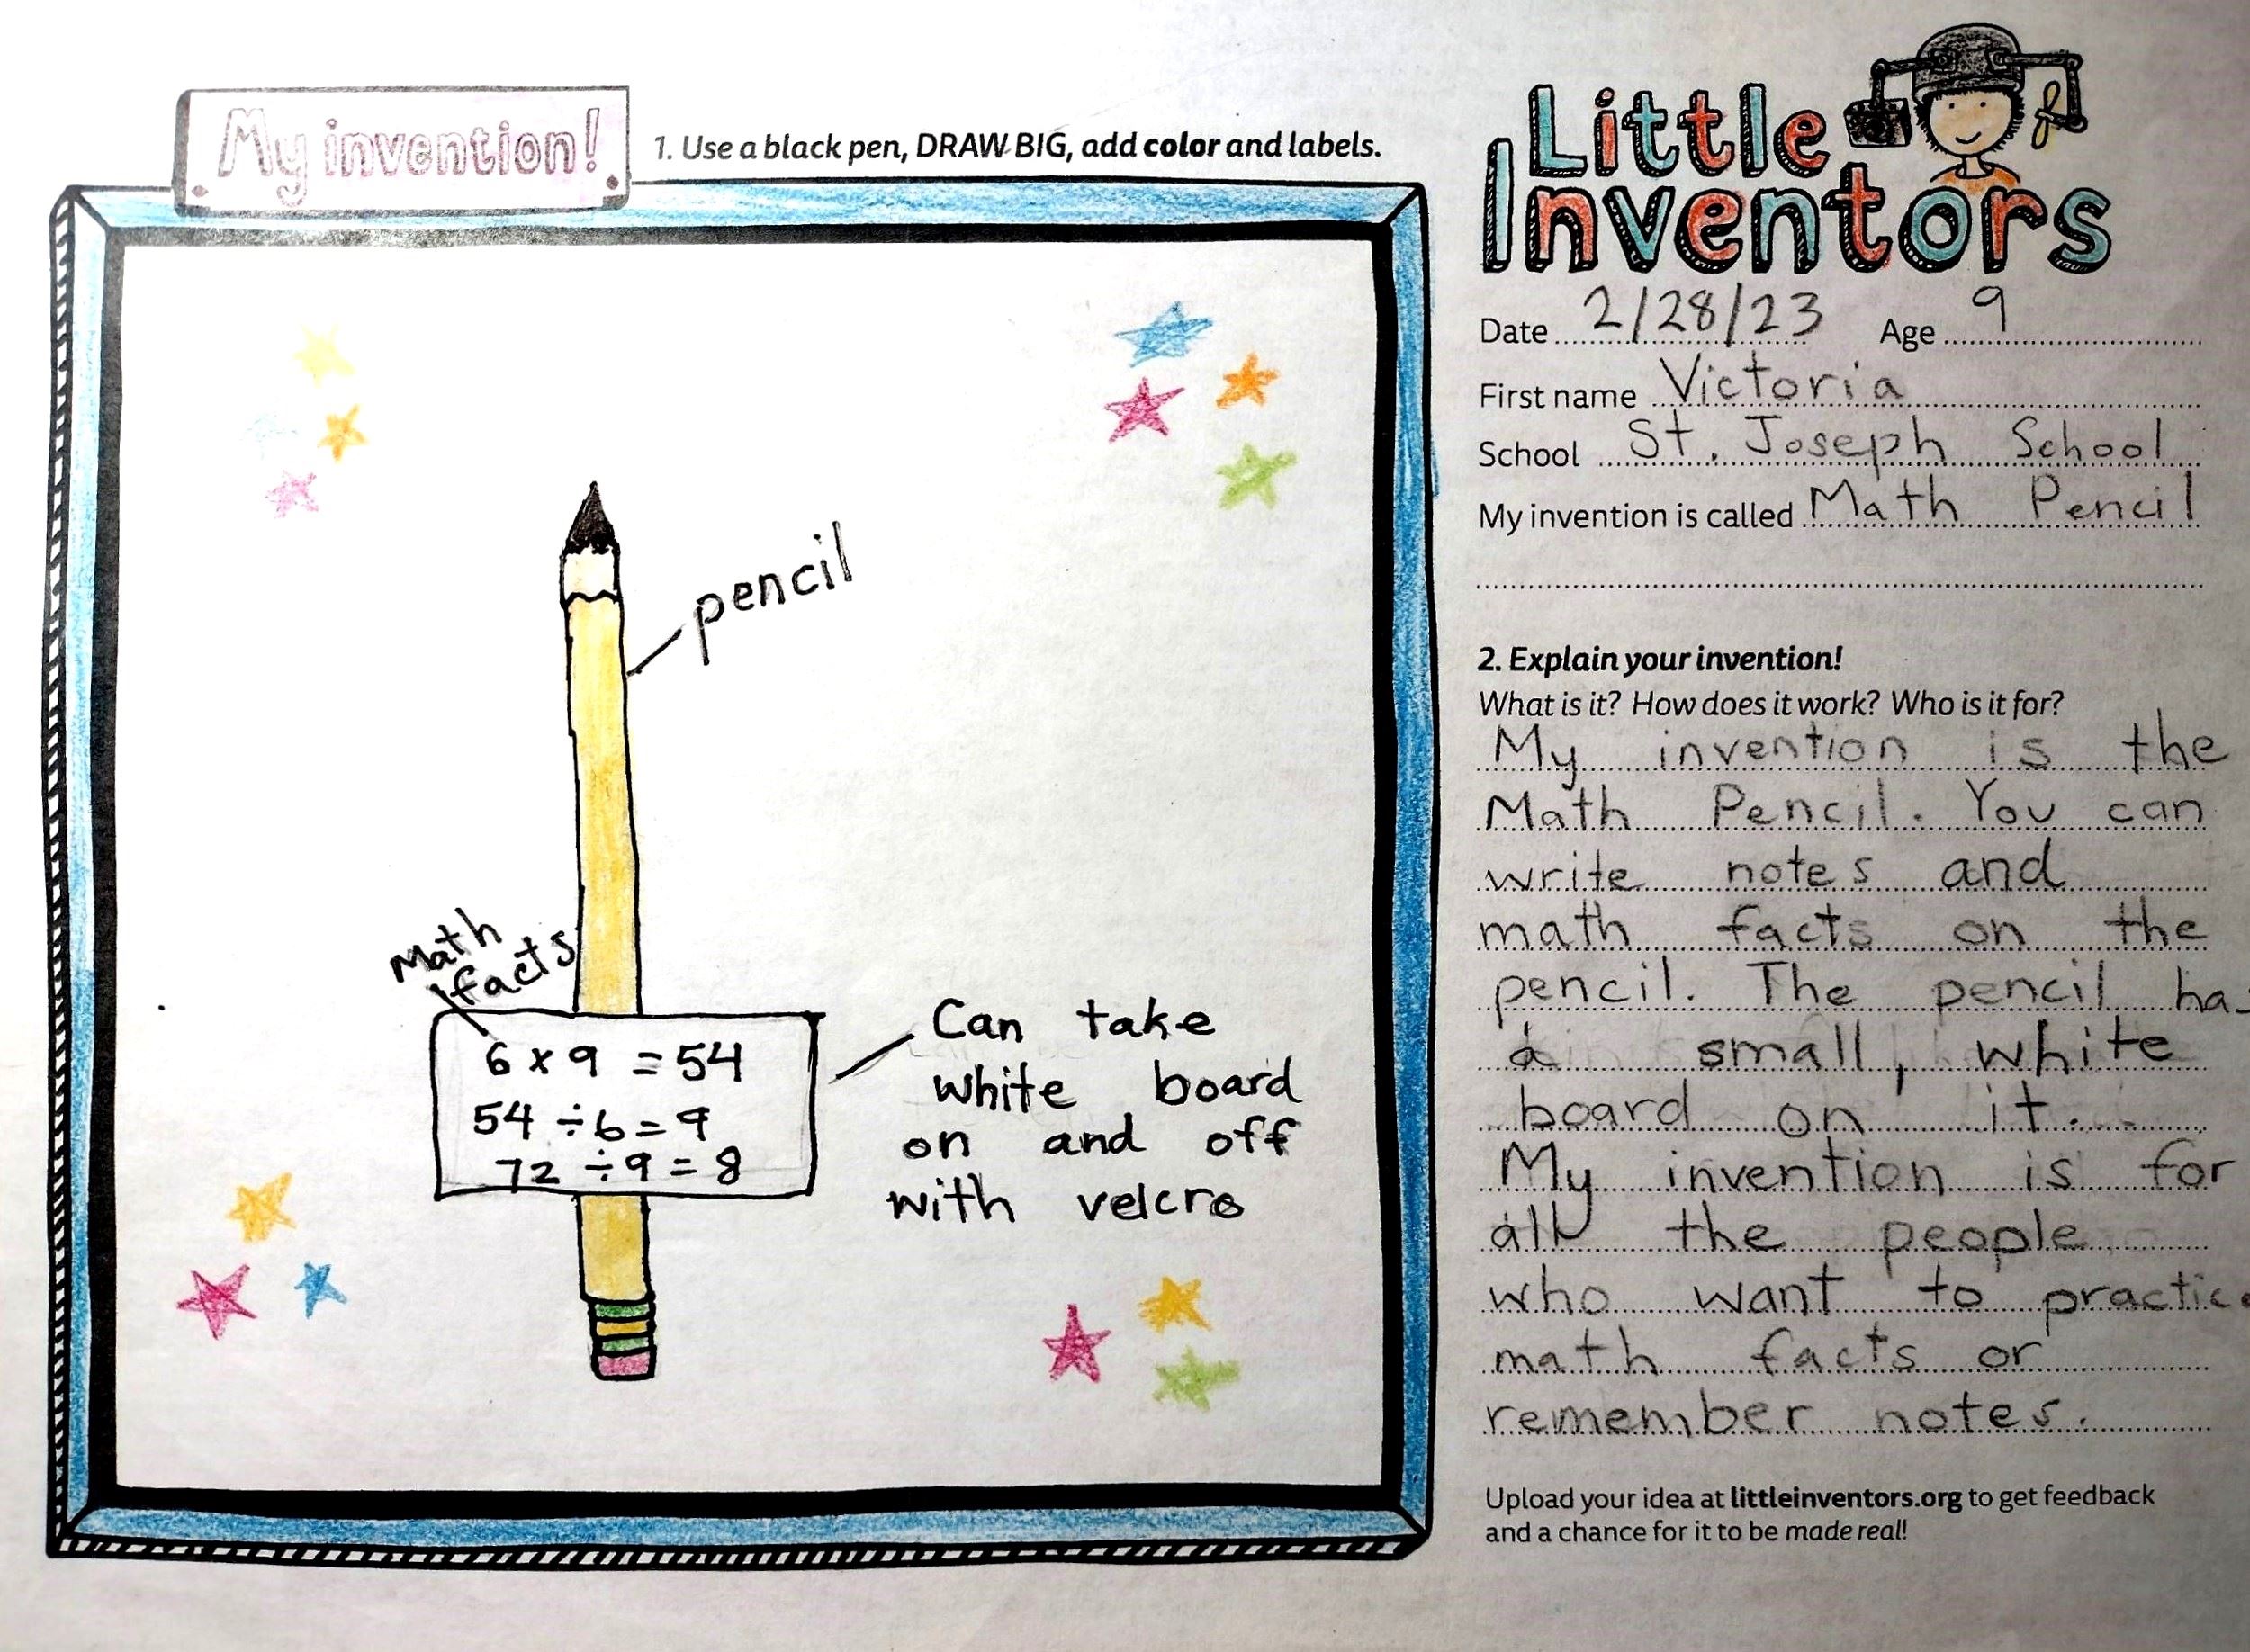 My invention!
1. Use a black pen, DRAW BIG, add color and labels.
pencil
Math
facts
6 x 9 = 54
54 ÷ 6 = 9
72 ÷ 9 = 8
Can take
white board
on and off
with velcro
Little
Inventors
Date 2/28/23 Age 9
First name Victoria
School St. Joseph School
My invention is called Math Pencil
2. Explain your invention!
What is it? How does it work? Who is it for?
My invention is the
Math Pencil. You can
write notes and
math facts on the
pencil. The pencil has
a small, white
board on it.
My invention is for
all the people
who want to practice
math facts or
remember notes.
Upload your idea at littleinventors.org to get feedback
and a chance for it to be made real!